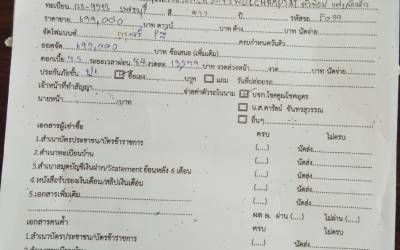 ทะเบียน กว-9993 เพชรบุรี สี ขาว ปี รหัสรถ F099
ราคาขาย 699,000 บาท ดาวน์ บาท ค้างดาวน์ บาท นัดจ่าย
จัดไฟแนนซ์ กรุงศรี ครบกำหนดวันที่
ยอดจัด 699,000 บาท ข้อเสนอ (เพิ่มเติม)
ดอกเบี้ย ระยะเวลาผ่อน 84 งวดละ งวดล่วงหน้า งวด บาท นัดจ่าย
ประกันภัยชั้น ซื้อเอง บาท แถม วันที่ปล่อยรถ
เจ้าหน้าที่ทำสัญญา จ่ายค่าตัวรถในนาม บจก.โชคคูณโชคอุดร
นายหน้า บาท น.ส.ดารัตน์ จันทรสุวรรณ
อื่นๆ
เอกสารผู้เช่าซื้อ ครบ ไม่ครบ
1.สำเนาบัตรประชาชน/บัตรข้าราชการ (....) (....) นัดส่ง
2.สำเนาทะเบียนบ้าน (....) (....) นัดส่ง
3.สำเนาสมุดบัญชีเงินฝาก/Statement ย้อนหลัง 6 เดือน (....) (....) นัดส่ง
4.หนังสือรับรองเงินเดือน/สลิปเงินเดือน (....) (....) นัดส่ง
5.เอกสารเพิ่มเติม (....) (....) นัดส่ง
ผล ผ่าน (....) ไม่ผ่าน (....)
เอกสารคนค้ำ ครบ ไม่ครบ
1.สำเนาบัตรประชาชน/บัตรข้าราชการ (....) (....) นัดส่ง
2.สำเนาทะเบียนบ้าน